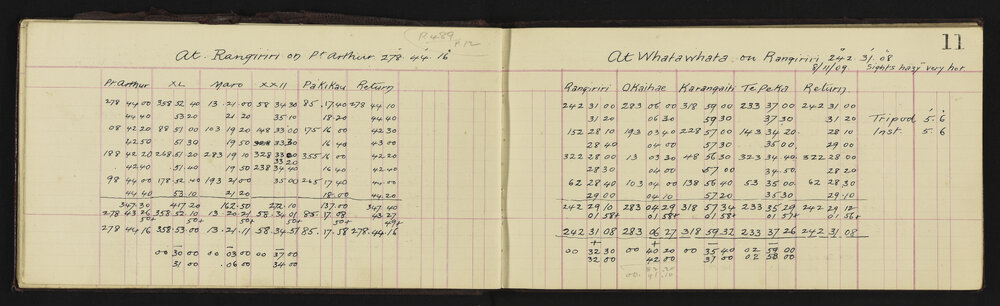 R489
p12
At Rangiriri on Pt Arthur 278° 44' 16"
Pt Arthur XL Maro XXII Pakikau Return
278 44 00 358 52 40 13 21 00 58 34 30 85 17 40 278 44 10
44 40 53 20 21 20 35 10 18 20 44 40
08 42 20 88 51 00 103 19 20 148 33 00 175 16 00 42 30
42 50 51 30 19 50 33 30 16 40 43 00
188 42 20 268 51 20 283 19 10 328 33 00 355 16 00 42 20
33 20
42 40 51 40 19 50 238 34 40 16 40 42 40
98 44 00 178 52 40 193 21 00 35 00 265 17 40 44 00
44 40 53 10 21 20 18 00 44 20
347 30 417 20 162 50 272 10 137 00 347 40
278 43 26 358 52 10 13 20 21 58 34 01 85 17 08 43 27
50+ 50+ 50+ 50+ 49+
278 44 16 358 53 00 13 21 11 58 34 51 85 17 58 278 44 16
00 30 00 00 03 00 00 37 00
31 00 06 00 34 00
11
At Whatawhata on Rangiriri 242° 31' 08"
8/11/09 Sights hazy very hot
Rangiriri Okaihae Karangaiti Te Peka Return
242 31 00 283 06 00 318 59 00 233 37 00 242 31 00
31 20 06 30 59 30 37 30 31 20
Tripod 5.6
152 28 10 193 03 40 228 57 00 143 34 20 28 10
Inst. 5.6
28 40 04 00 57 30 35 00 29 00
322 28 00 13 03 30 48 56 30 323 34 40 322 28 00
28 30 04 00 57 00 34 50 28 20
62 28 40 103 04 00 138 56 40 53 35 00 62 28 30
29 00 04 10 57 20 35 30 29 10
242 29 10 283 04 29 318 57 34 233 35 29 242 29 12
01 58+ 01 58+ 01 58+ 01 57+ 01 56+
242 31 08 283 06 27 318 59 32 233 37 26 242 31 08
+ − − −
00 32 30 00 40 20 00 35 40 02 59 00
32 00 42 00 31 00 02 58 00